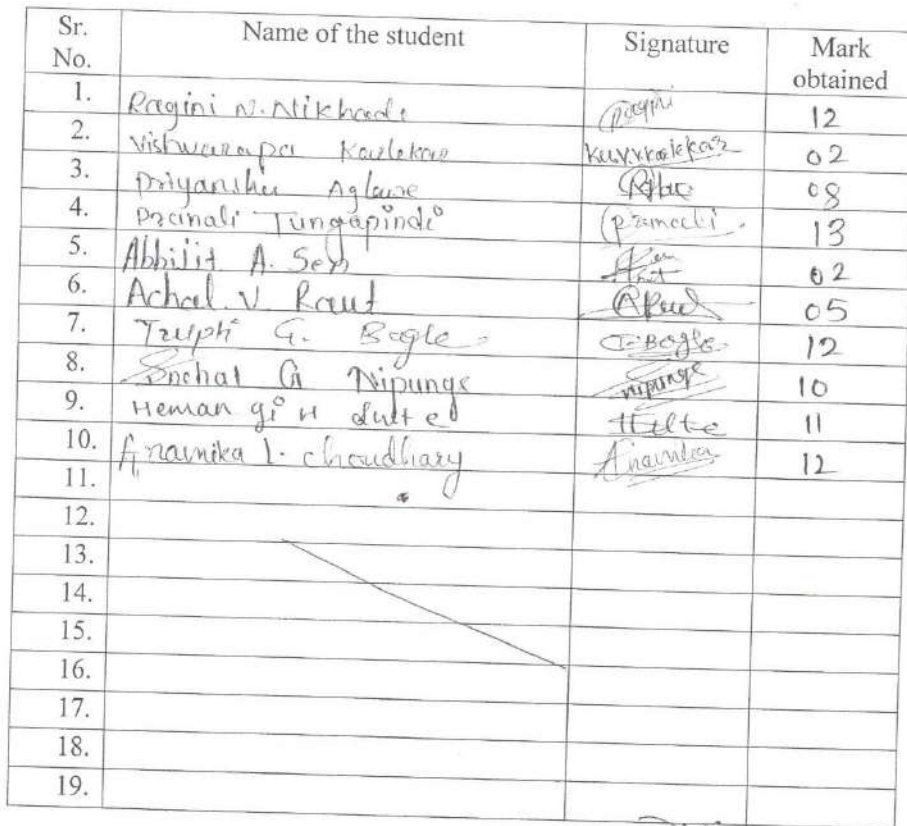 Sr. No. Name of the student Signature Mark obtained
1. Ragini N. Nikhade Ragini 12
2. Vishwarupa Kavlekar 02
3. Priyanshu Aglawe 08
4. Pranali Tungapindi Pranali 13
5. Abhijit A. Sen 02
6. Achal V Raut ARaut 05
7. Trupti G. Bagle T.Bagle 12
8. Snehal G Nipunge Nipunge 10
9. Hemangi H 11
10. Anamika L. choudhary Anamika 12
11.
12.
13.
14.
15.
16.
17.
18.
19.